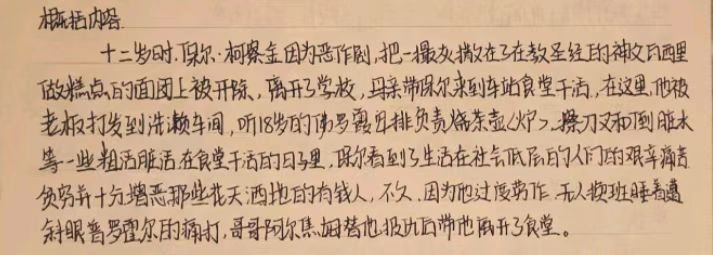 概括内容
十二岁时,保尔·柯察金因为恶作剧,把一撮灰撒在了在教圣经的神父瓦西里
做糕点的面团上被开除,离开了学校,母亲带保尔来到车站食堂干活,在这里,他被
老板打发到洗濑车间,听18岁的佛罗霞安排负责烧茶壶(炉)、擦刀叉和倒脏水
等一些粗活脏活.在食堂干活的日子里,保尔看到了生活在社会低层的人们的艰辛痛苦
贫穷并十分憎恶那些花天酒地的有钱人,不久,因为他过度劳作,无人换班睡着遭
斜眼普罗霍尔的痛打,哥哥阿尔焦姆替他报仇后带他离开了食堂。